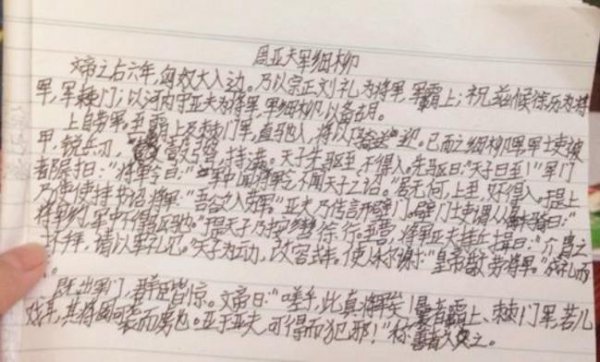 周亚夫军细柳
文帝之后六年,匈奴大入边。乃以宗正刘礼为将军,军霸上;祝兹候徐历为将
军,军棘门;以河内守亚夫为将军,军细柳,以备胡。
上自劳军。至霸上及棘门军,直驰入,将以下骑送迎。已而之细柳军,军士吏被
甲,锐兵刃,彀弓弩,持满。天子先驱至,不得入。先驱曰:"天子且至!"军门
都尉曰:"将军令曰:"军中闻将军令,不闻天子之诏。"居无何,上至,又不得入。于是上
乃使使持节诏将军:"吾欲入劳军。"亚夫乃传言开壁门。壁门士吏谓从属车骑曰:"
将军约,军中不得驱驰。"于是天子乃按辔徐行。至营,将军亚夫持兵揖曰:"介胄之
士不拜,请以军礼见。"天子为动,改容式车。使人称谢:"皇帝敬劳将军。"成礼而
既出军门,群臣皆惊。文帝曰:"嗟乎,此真将军矣!曩者霸上、棘门军,若儿
戏耳,其将固可袭而虏也。至于亚夫,可得而犯邪!"称善者久之。